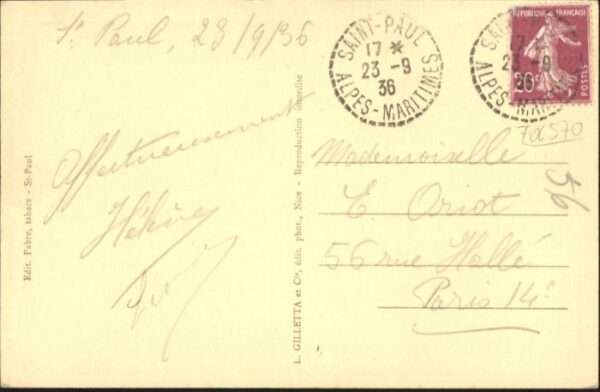 St Paul, 23/9/36
SAINT-PAUL
17 *
23 -9
36
ALPES-MARITIMES
RÉPUBLIQUE FRANÇAISE
POSTES
Affectueusement
Mademoiselle
E. Oriot
56 rue Hallé
Paris 14e
56
Edit. Fabre, tabacs - St-Paul
L. GILLETTA et Cie, édit. phot., Nice - Reproduction interdite